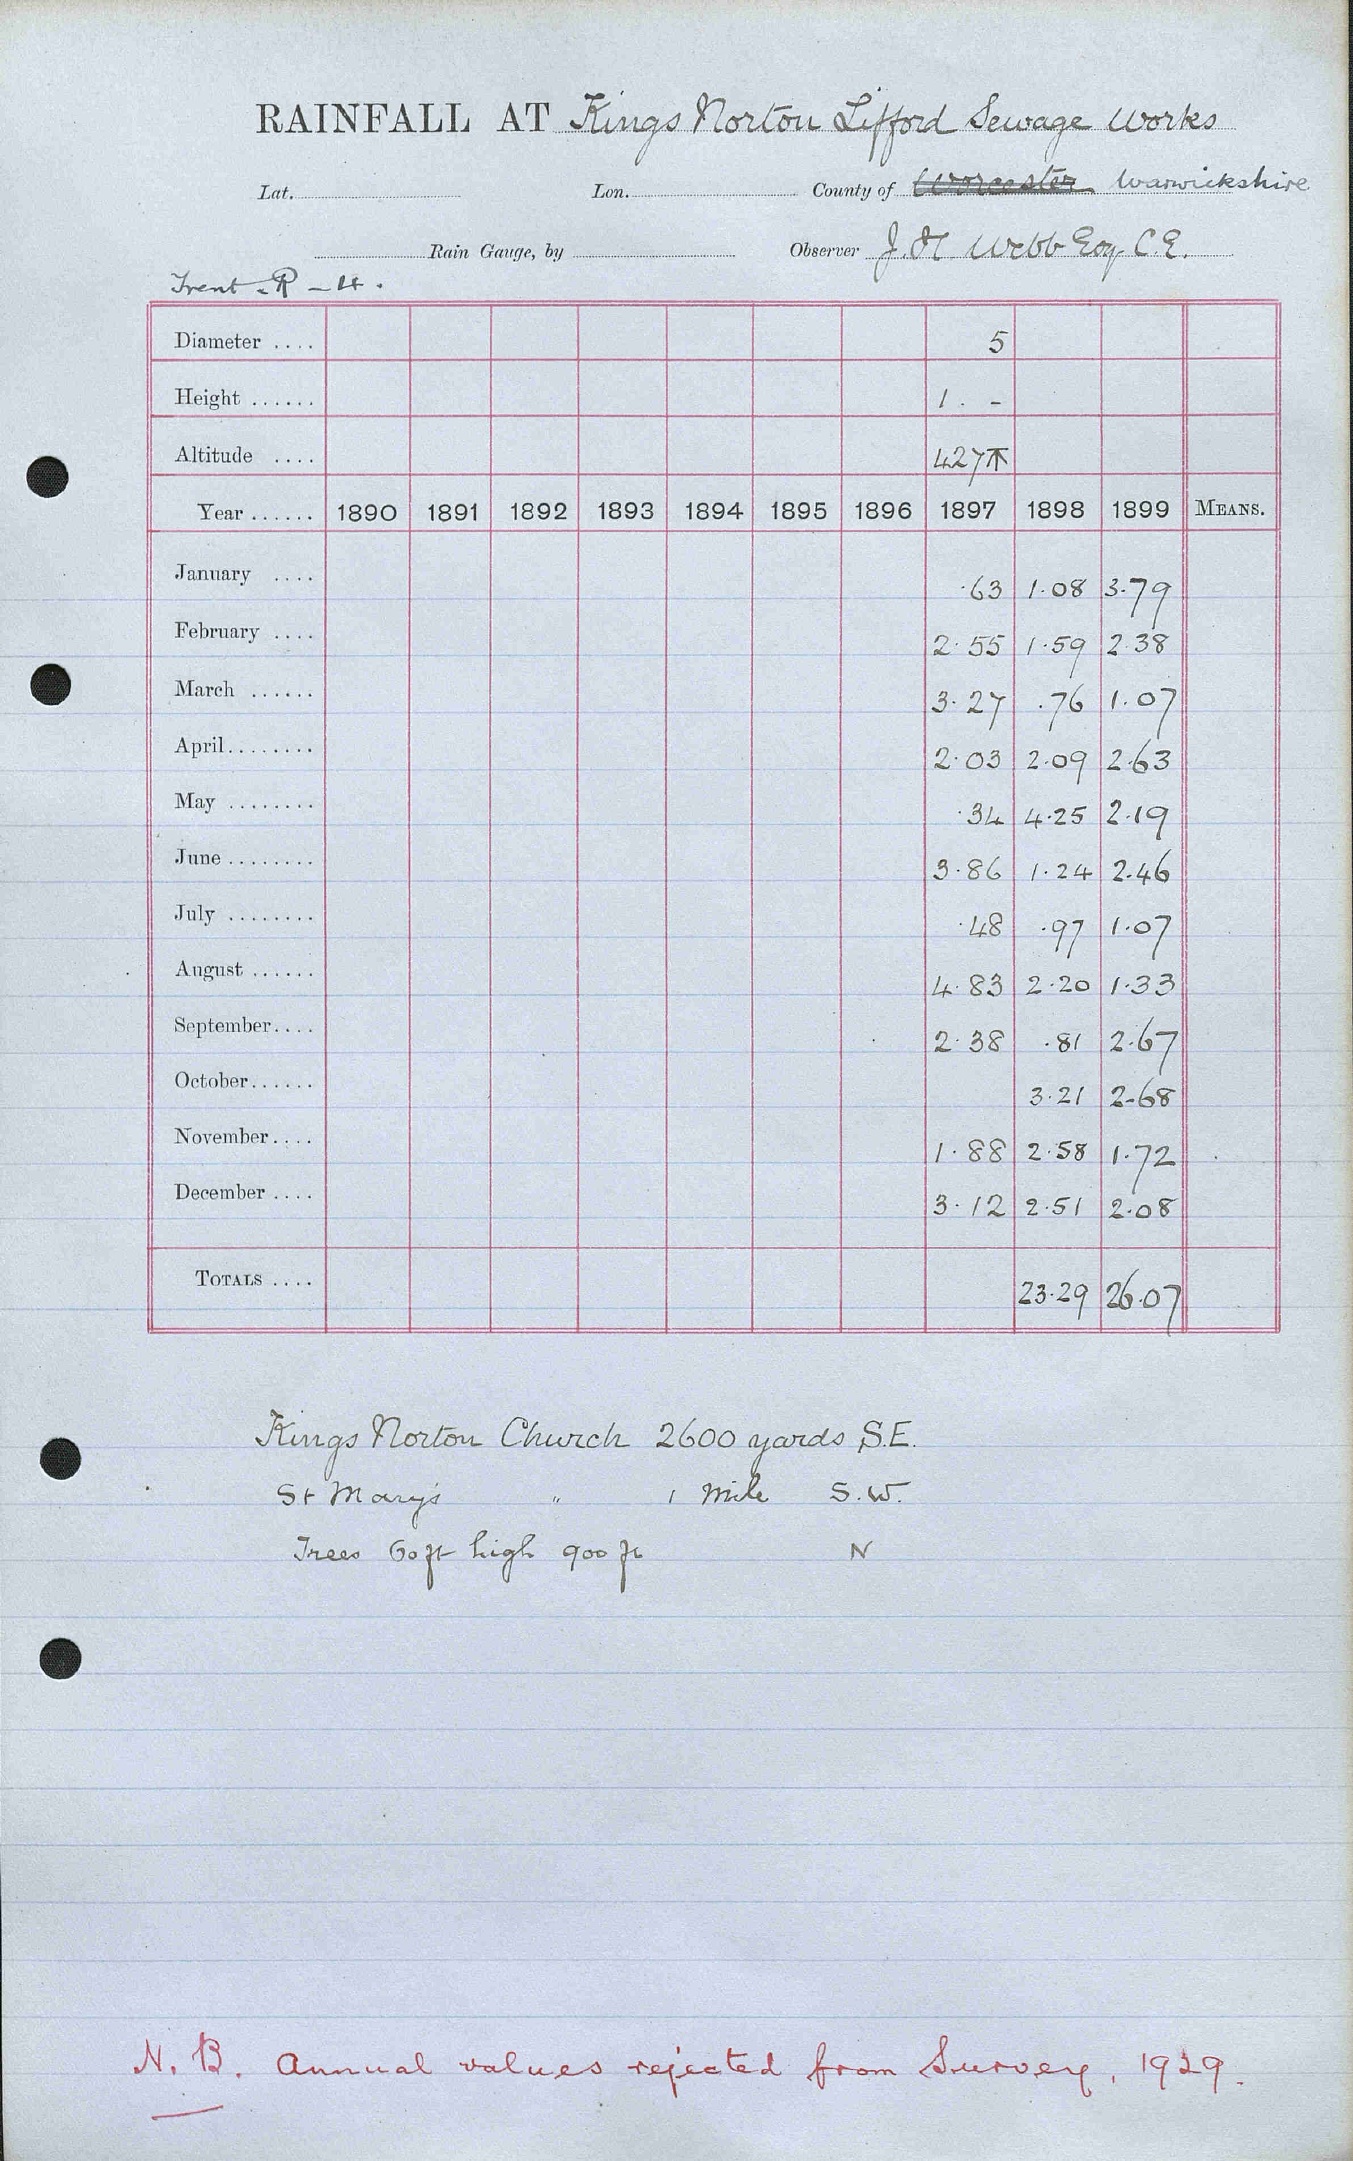 RAINFALL AT Kings Norton Lifford Sewage Works
Lat. Lon. County of Worcester Warwickshire
Rain Gauge, by Observer J. H Webb Esq C.E.
Trent - R - 4.
Diameter .... 5
Height ...... 1. -
Altitude .... 427
Year ...... 1890 1891 1892 1893 1894 1895 1896 1897 1898 1899 MEANS.
January .... ·63 1·08 3·79
February .... 2·55 1·59 2·38
March ...... 3·27 ·76 1·07
April ........ 2·03 2·09 2·63
May ........ ·34 4·25 2·19
June ........ 3·86 1·24 2·46
July ........ ·48 ·97 1·07
August ...... 4·83 2·20 1·33
September .... 2·38 ·81 2·67
October ...... 3·21 2·68
November .... 1·88 2·58 1·72
December .... 3·12 2·51 2·08
TOTALS .... 23·29 26·07
Kings Norton Church 2600 yards S.E.
St Mary's " 1 Mile S.W.
Trees 60 ft high 900 ft N
N. B. Annual values rejected from Survey, 1929.